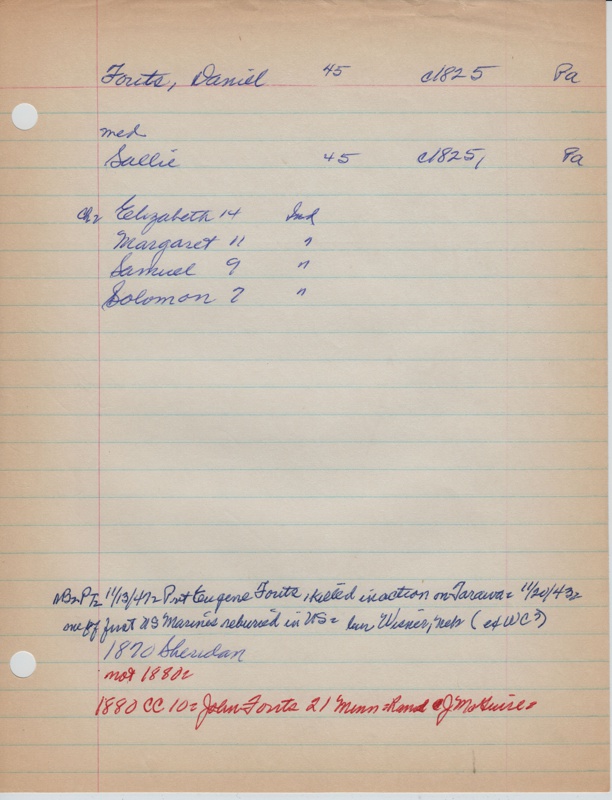 Fouts, Daniel 45 c1825 Pa
med
Sallie 45 c1825, Pa
Ch= Elizabeth 14 Ind
Margaret 11 "
Samuel 9 "
Solomon 7 "
11/13/47= Pvt Eugene Fouts, killed in action on Tarawa= 11/20/43=
one of first US Marines reburied in US= bur Wisner, Neb (ex WC?)
1870 Sheridan
not 1880=
1880 CC 10= John Fouts 21 Minn = Rand CJ McGuire=